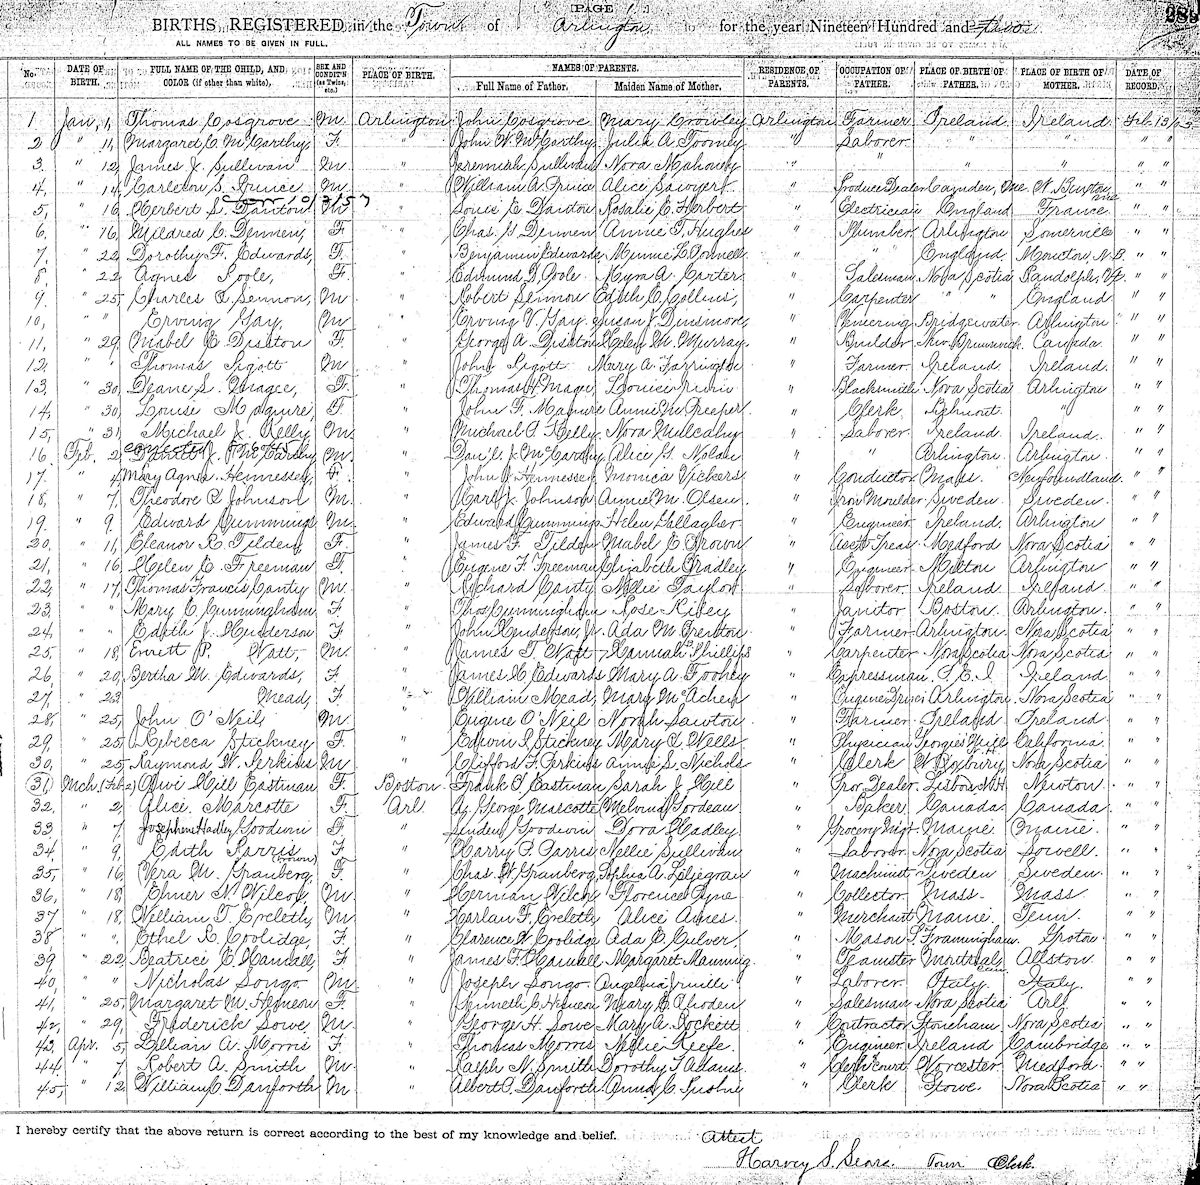 [PAGE 1]
285
BIRTHS REGISTERED in the Town of Arlington for the year Nineteen Hundred and
ALL NAMES TO BE GIVEN IN FULL.
No. DATE OF BIRTH. FULL NAME OF THE CHILD, AND COLOR (if other than white). SEX AND CONDIT'N (as Twins, etc.) PLACE OF BIRTH. NAMES OF PARENTS. Full Name of Father. Maiden Name of Mother. RESIDENCE OF PARENTS. OCCUPATION OF FATHER. PLACE OF BIRTH OF FATHER. PLACE OF BIRTH OF MOTHER. DATE OF RECORD.
1 Jan, 1, Thomas Cosgrove M. Arlington John Cosgrove Mary Crowley Arlington Farmer Ireland Ireland
2 " 11, Margaret C. McCarthy, F. " John W. McCarthy Julia A. Toomey " Laborer " " " "
3. " 12, James J. Sullivan M " Jeremiah Sullivan Nora Mahoney " " " " " "
4, " 14, Carleton S. Prince M. " William A. Prince Alice Sawyer " Produce Dealer Camden, Me. N. Buxton Me " "
5, " 16 Herbert L. Danton M " Louis E. Danton Rosalie E. Herbert " Electrician England France " "
6, " 16, Mildred C. Dennen, F. " Chas. G. Dennen Annie T. Hughes " Plumber Arlington Somerville " "
7, " 22 Dorothy F. Edwards, F. " Benjamin Edwards Minnie L. Connell " " " England Moncton, N.B. " "
8, " 22, Agnes Poole, F. " Edmund D. Poole Myra A. Carter " Salesman Nova Scotia Randolph, Vt. " "
9. " 25, Charles R. Lennon, M " Robert Lennon Edith C. Collins, " Carpenter " " England " "
10, " " Erving Gay, M " Erving V. Gay Susan J. Dinsmore, " Veneering Bridgewater Arlington " "
11, " 29, Mabel E. Disston F. " George A. Disston Helen M. Murray " Builder New Brunswick Canada " "
12, " " Thomas Pigott M " John Pigott Mary A. Farrington " Farmer Ireland Ireland. " "
13 " 30, Deane S. Magee, F. " Thomas H. Magee Louise " Blacksmith Nova Scotia Arlington " "
14, " 30, Louise Maguire, F. " John F. Maguire Annie M. " Clerk Belmont " " "
15, " 31 Michael J. Kelly M. " Michael A. Kelly, Nora Mulcahy " Laborer Ireland. Ireland. " "
16 Feb. 2, J. McCarthy M. " Dan'l J. McCarthy Alice G. Nolan " " Arlington Arlington " "
17. " 4, Mary Agnes Hennessey, F. " John J. Hennessey Monica Vickers " Conductor Mass. Newfoundland " "
18, " 7, Theodore R. Johnson M. " Karl J. Johnson Annie M. Olsen " Iron Moulder Sweden Sweden. " "
19. " 9 Edward Cummings M. " Edward Cummings Helen Gallagher " Engineer Ireland. Arlington " "
20, " 11, Eleanor R. Tilden, F. " James F. Tilden Mabel C. Brown " Ass't Treas Medford Nova Scotia " "
21, " 16 Helen E. Freeman F. " Eugene F. Freeman Elizabeth Bradley " Engineer Milton Arlington " "
22, " 17, Thomas Francis Canty M. " Richard Canty Nellie Taylor " Laborer Ireland Ireland " "
23, " " Mary C. Cunningham F " Thos. Cunningham Rose Kiley " Janitor Boston Arlington. " "
24, " " Edith J. Henderson F " John Henderson, Jr. Ada M. Trenton " Farmer Arlington Nova Scotia " "
25, " 18, Everett P. Natt, M. " James T. Natt Hannah Phillips " Carpenter Nova Scotia Nova Scotia " "
26, " 20, Bertha M. Edwards, F " James E. Edwards Mary A. Toohey " Expressman P.E.I Ireland " "
27, " 23 Mead, F " William Mead, Mary McAchern " Engine Driver Arlington Nova Scotia " "
28, " 25, John O'Neil, M " Eugene O'Neil Norah Lawton " Farmer Ireland Ireland " "
29. " 25 Rebecca Stickney F. " Edwin P. Stickney Mary A. Wells " Physician California. " "
30, " 25, Raymond W. Perkins M " Clifford F. Perkins Annie S. Nichols " Clerk W. Roxbury Nova Scotia " "
31 Mch. (Feb 2) Olive Hill Eastman F. Boston Frank A. Eastman Sarah J. Hill " Pro. Dealer Lisbon N.H Newton " "
32. " 2, Alice Marcotte F Arl. George Marcotte Melvina " Baker Canada Canada " "
33. " 7, Josephine Hadley Goodwin F. " Linden Goodwin Dora Hadley " Grocery Mgr. Maine Maine. " "
34 " 9, Edith Parris (brown) F " Harry P. Parris Nellie Sullivan " Laborer Nova Scotia Lowell " "
35, " 16 Vera M. Granberg. F. " Chas. W. Granberg, Sophia A. Liljegran " Machinist Sweden Sweden. " "
36, " 18, Elmer N. Wilcox M. " Herman Wilcox Florence Pyne " Collector Mass. Mass " "
37 " 18, William T. Eveleth, M. " Harlan F. Eveleth Alice Ames. " Merchant Maine. Tenn " "
38 " ", Ethel R. Coolidge, F. " Clarence W. Coolidge Ada E. Culver. " Mason S. Framingham Groton. " "
39 " 22, Beatrice E. Randall, F " James F. Randall Margaret Manning " Teamster Montreal Can. Allston " "
40, " " Nicholas Songo M " Joseph Songo Angelina " Laborer Italy. Italy. " "
41, " 25, Margaret M. Hemeon F. " Kenneth C. Hemeon Mary B. Rhoden " Salesman Nova Scotia Arl. " "
42, " 29, Frederick Lowe, M. " George H. Lowe Mary A. Lockett " Contractor Stoneham Nova Scotia " "
43, Apr. 5, Lillian A. Morris F " Thomas Morris Nellie Keefe " Engineer Ireland Cambridge " "
44. " 7, Robert A. Smith M. " Ralph N. Smith Dorothy T. Adams " Clerk Court Worcester Medford " "
45, " 12, William C. Danforth M " Albert A. Danforth Anna C. " Clerk Stowe Nova Scotia " "
I hereby certify that the above return is correct according to the best of my knowledge and belief.
Attest
Harvey S. Sears. Town Clerk.